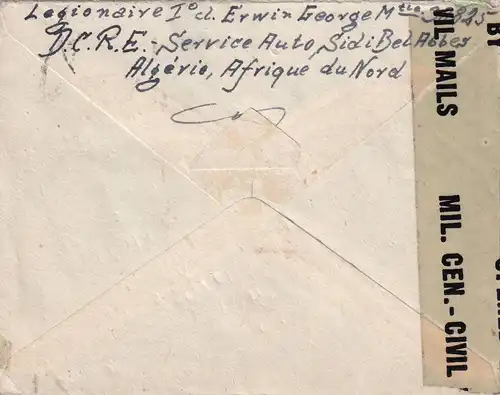 Legionaire 1° cl. Erwin George Mtle
D.C.R.E. - Service Auto, Sidi Bel Abbes
Algérie, Afrique du Nord
VIL MAILS
MIL. CEN. - CIVIL
BY